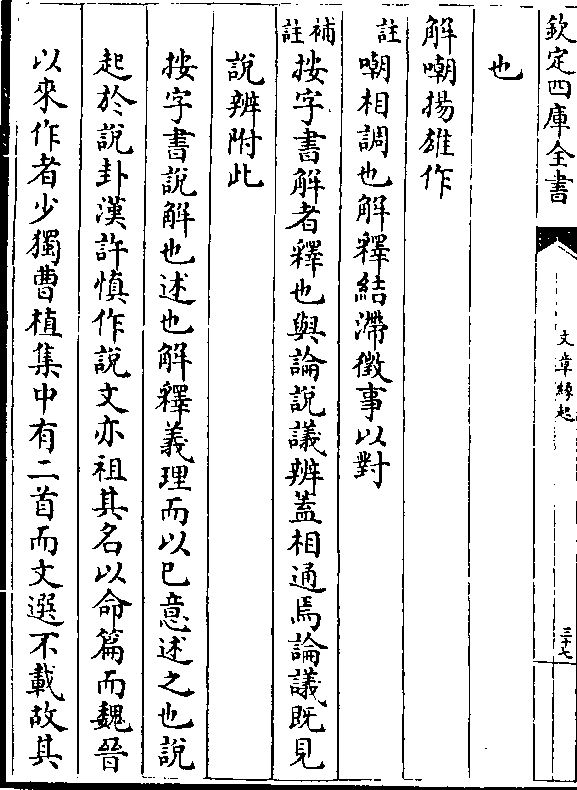 欽定四庫全書
文章緣起
三十七
也
解嘲揚雄作
註
嘲相調也解釋結滯徵事以對
補註
按字書解者釋也與論說議辨蓋相通焉論議既見
說辨附此
按字書說解也述也解釋義理而以已意述之也說
起於說卦漢許慎作說文亦祖其名以命篇而魏晉
以來作者少獨曹植集中有二首而文選不載故其